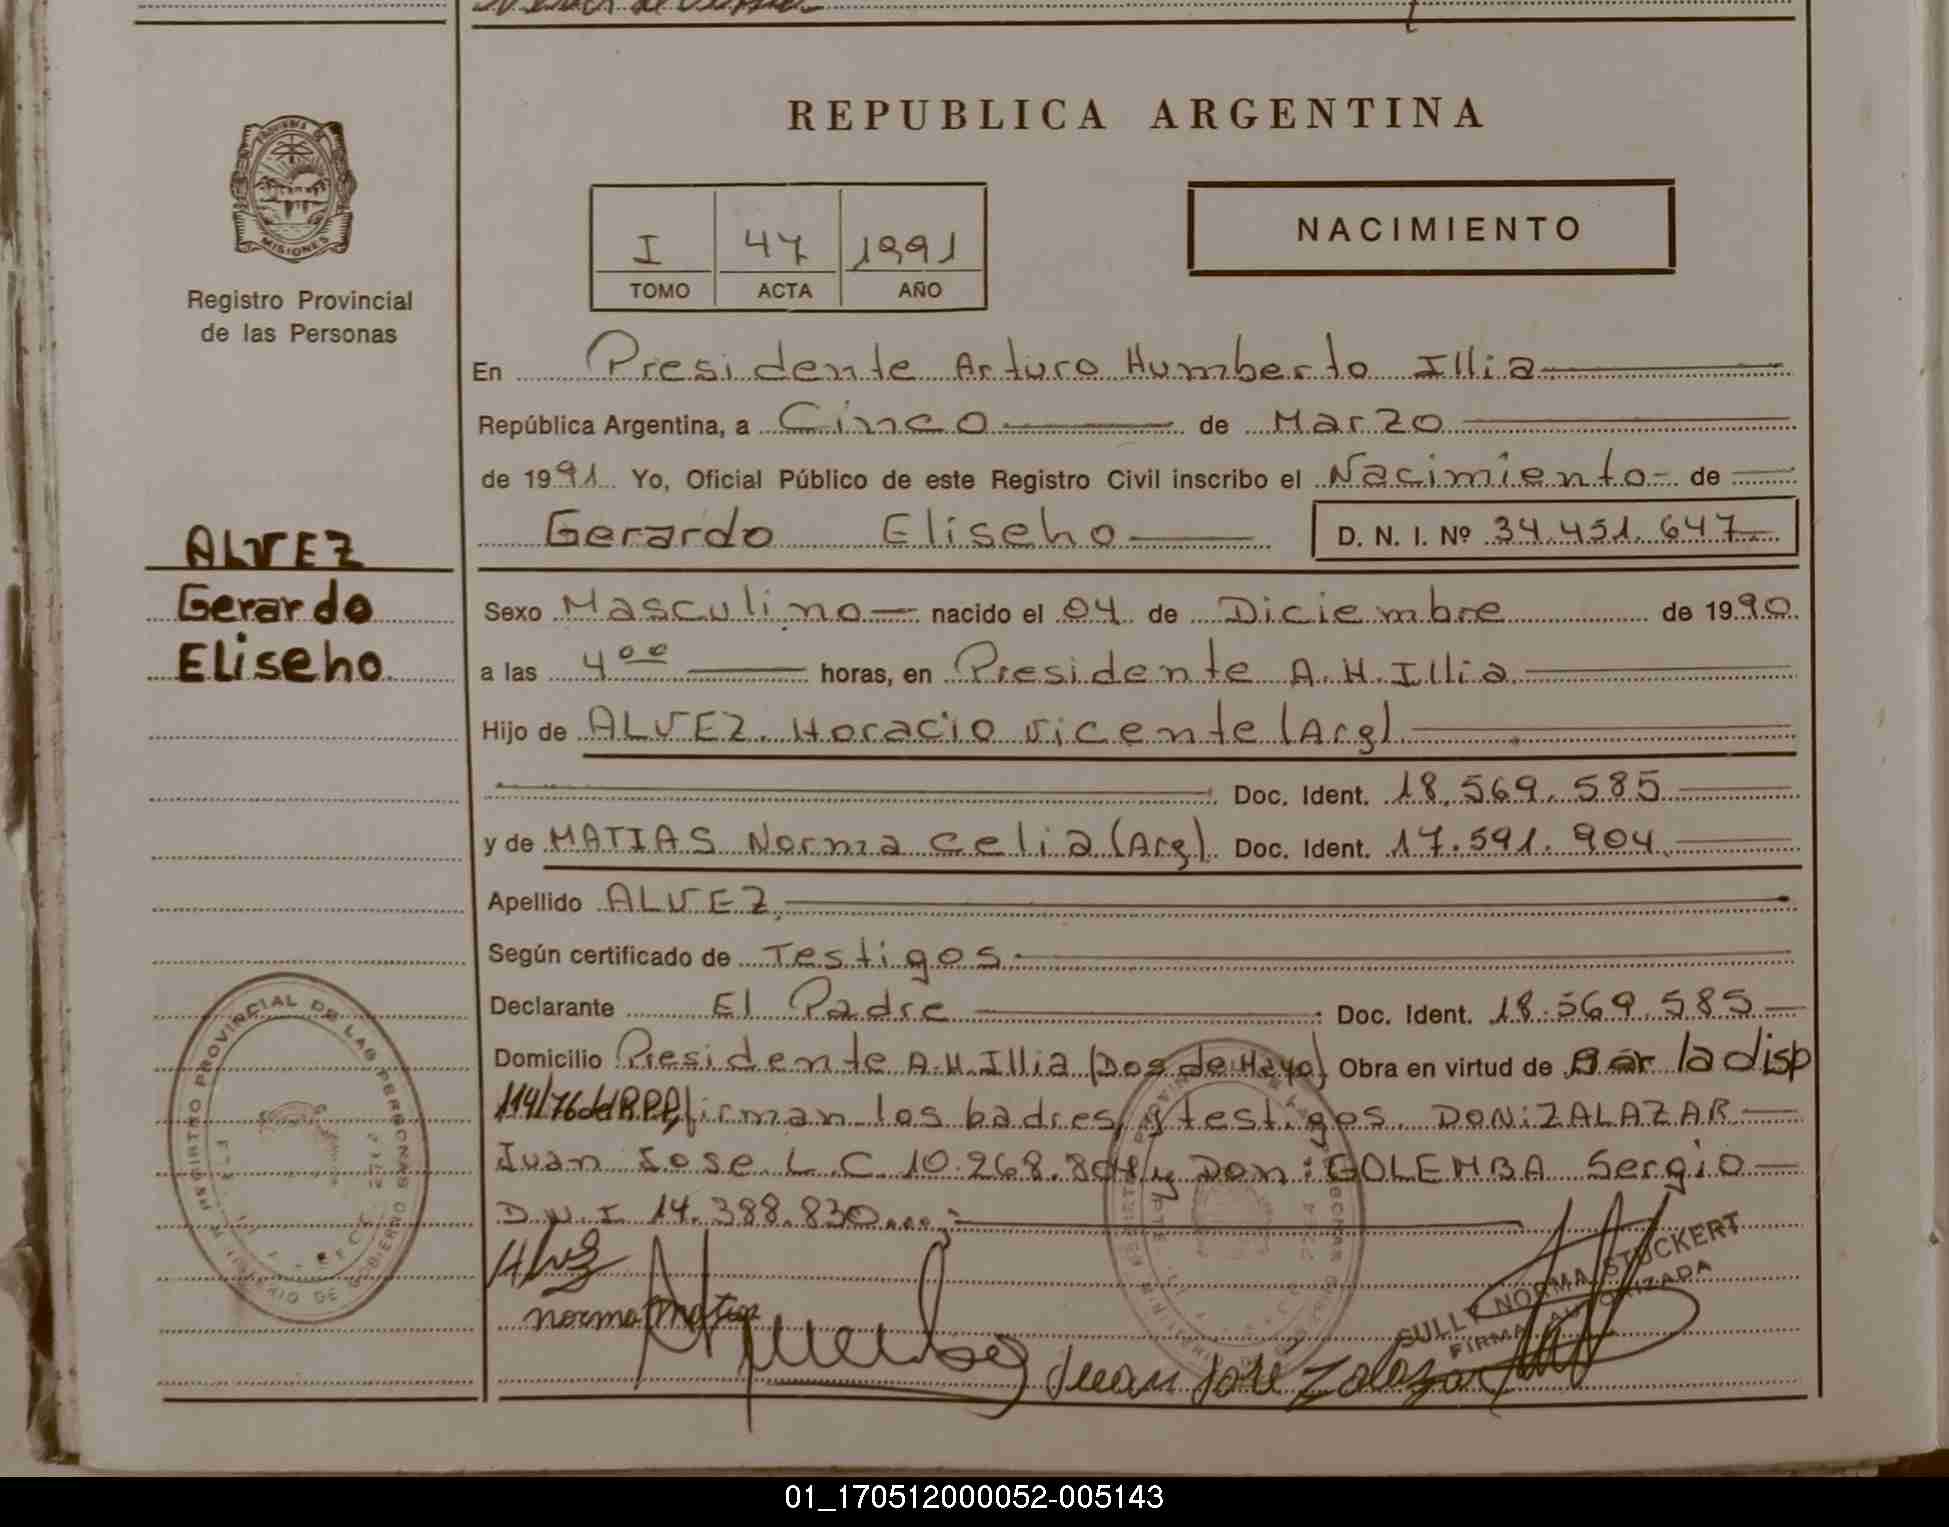 REPUBLICA ARGENTINA
PROVINCIA DE MISIONES
Registro Provincial
de las Personas
I 47 1991
TOMO ACTA AÑO
NACIMIENTO
En Presidente Arturo Humberto Illia
República Argentina, a Cinco de Marzo
de 1991 Yo, Oficial Público de este Registro Civil inscribo el Nacimiento de
Gerardo Eliseho D. N. I. Nº 34.451.647
ALVEZ
Gerardo
Eliseho
Sexo Masculino nacido el 04 de Diciembre de 1990
a las 4 00 horas, en Presidente A.H.Illia
Hijo de ALVEZ. Horacio Vicente (Arg)
Doc. Ident. 18.569.585
y de MATIAS Norma Celia (Arg). Doc. Ident. 17.591.904
Apellido ALVEZ
Según certificado de Testigos
Declarante El Padre Doc. Ident. 18.569.585
Domicilio Presidente A.H.Illia (Dos de Mayo) Obra en virtud de la disp
114/76 del R.P.P. firman los padres y testigos. DON: ZALAZAR
Juan Jose L.C. 10.268.804 y Don: GOLEMBA Sergio
D.N.I 14.388.830
norma matias
Juan José Zalazar
SULLY NORMA STUCKERT
FIRMA AUTORIZADA
REGISTRO PROVINCIAL DE LAS PERSONAS
MINISTERIO DE GOBIERNO
01_170512000052-005143